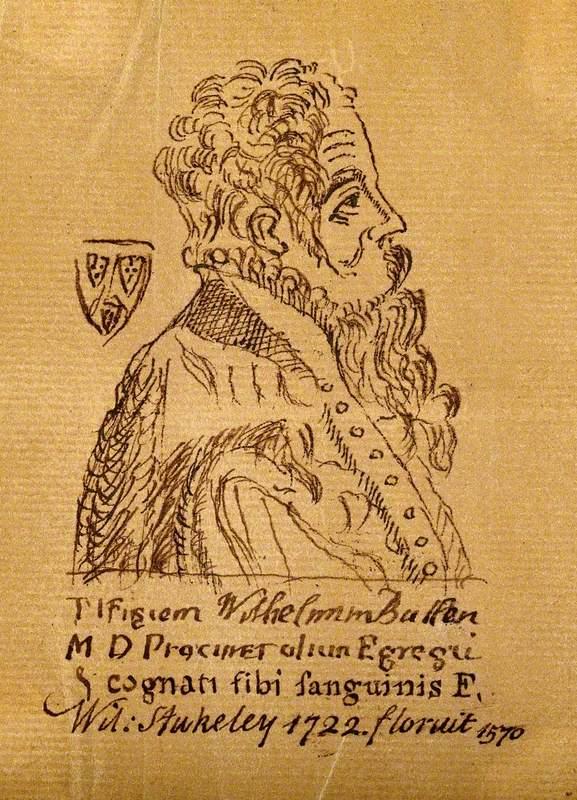 Effigiem Wilhelmi Butten
M D Procuret olim Egregii
& cognati sibi sanguinis F.
Wil: Stukeley 1722. floruit 1570